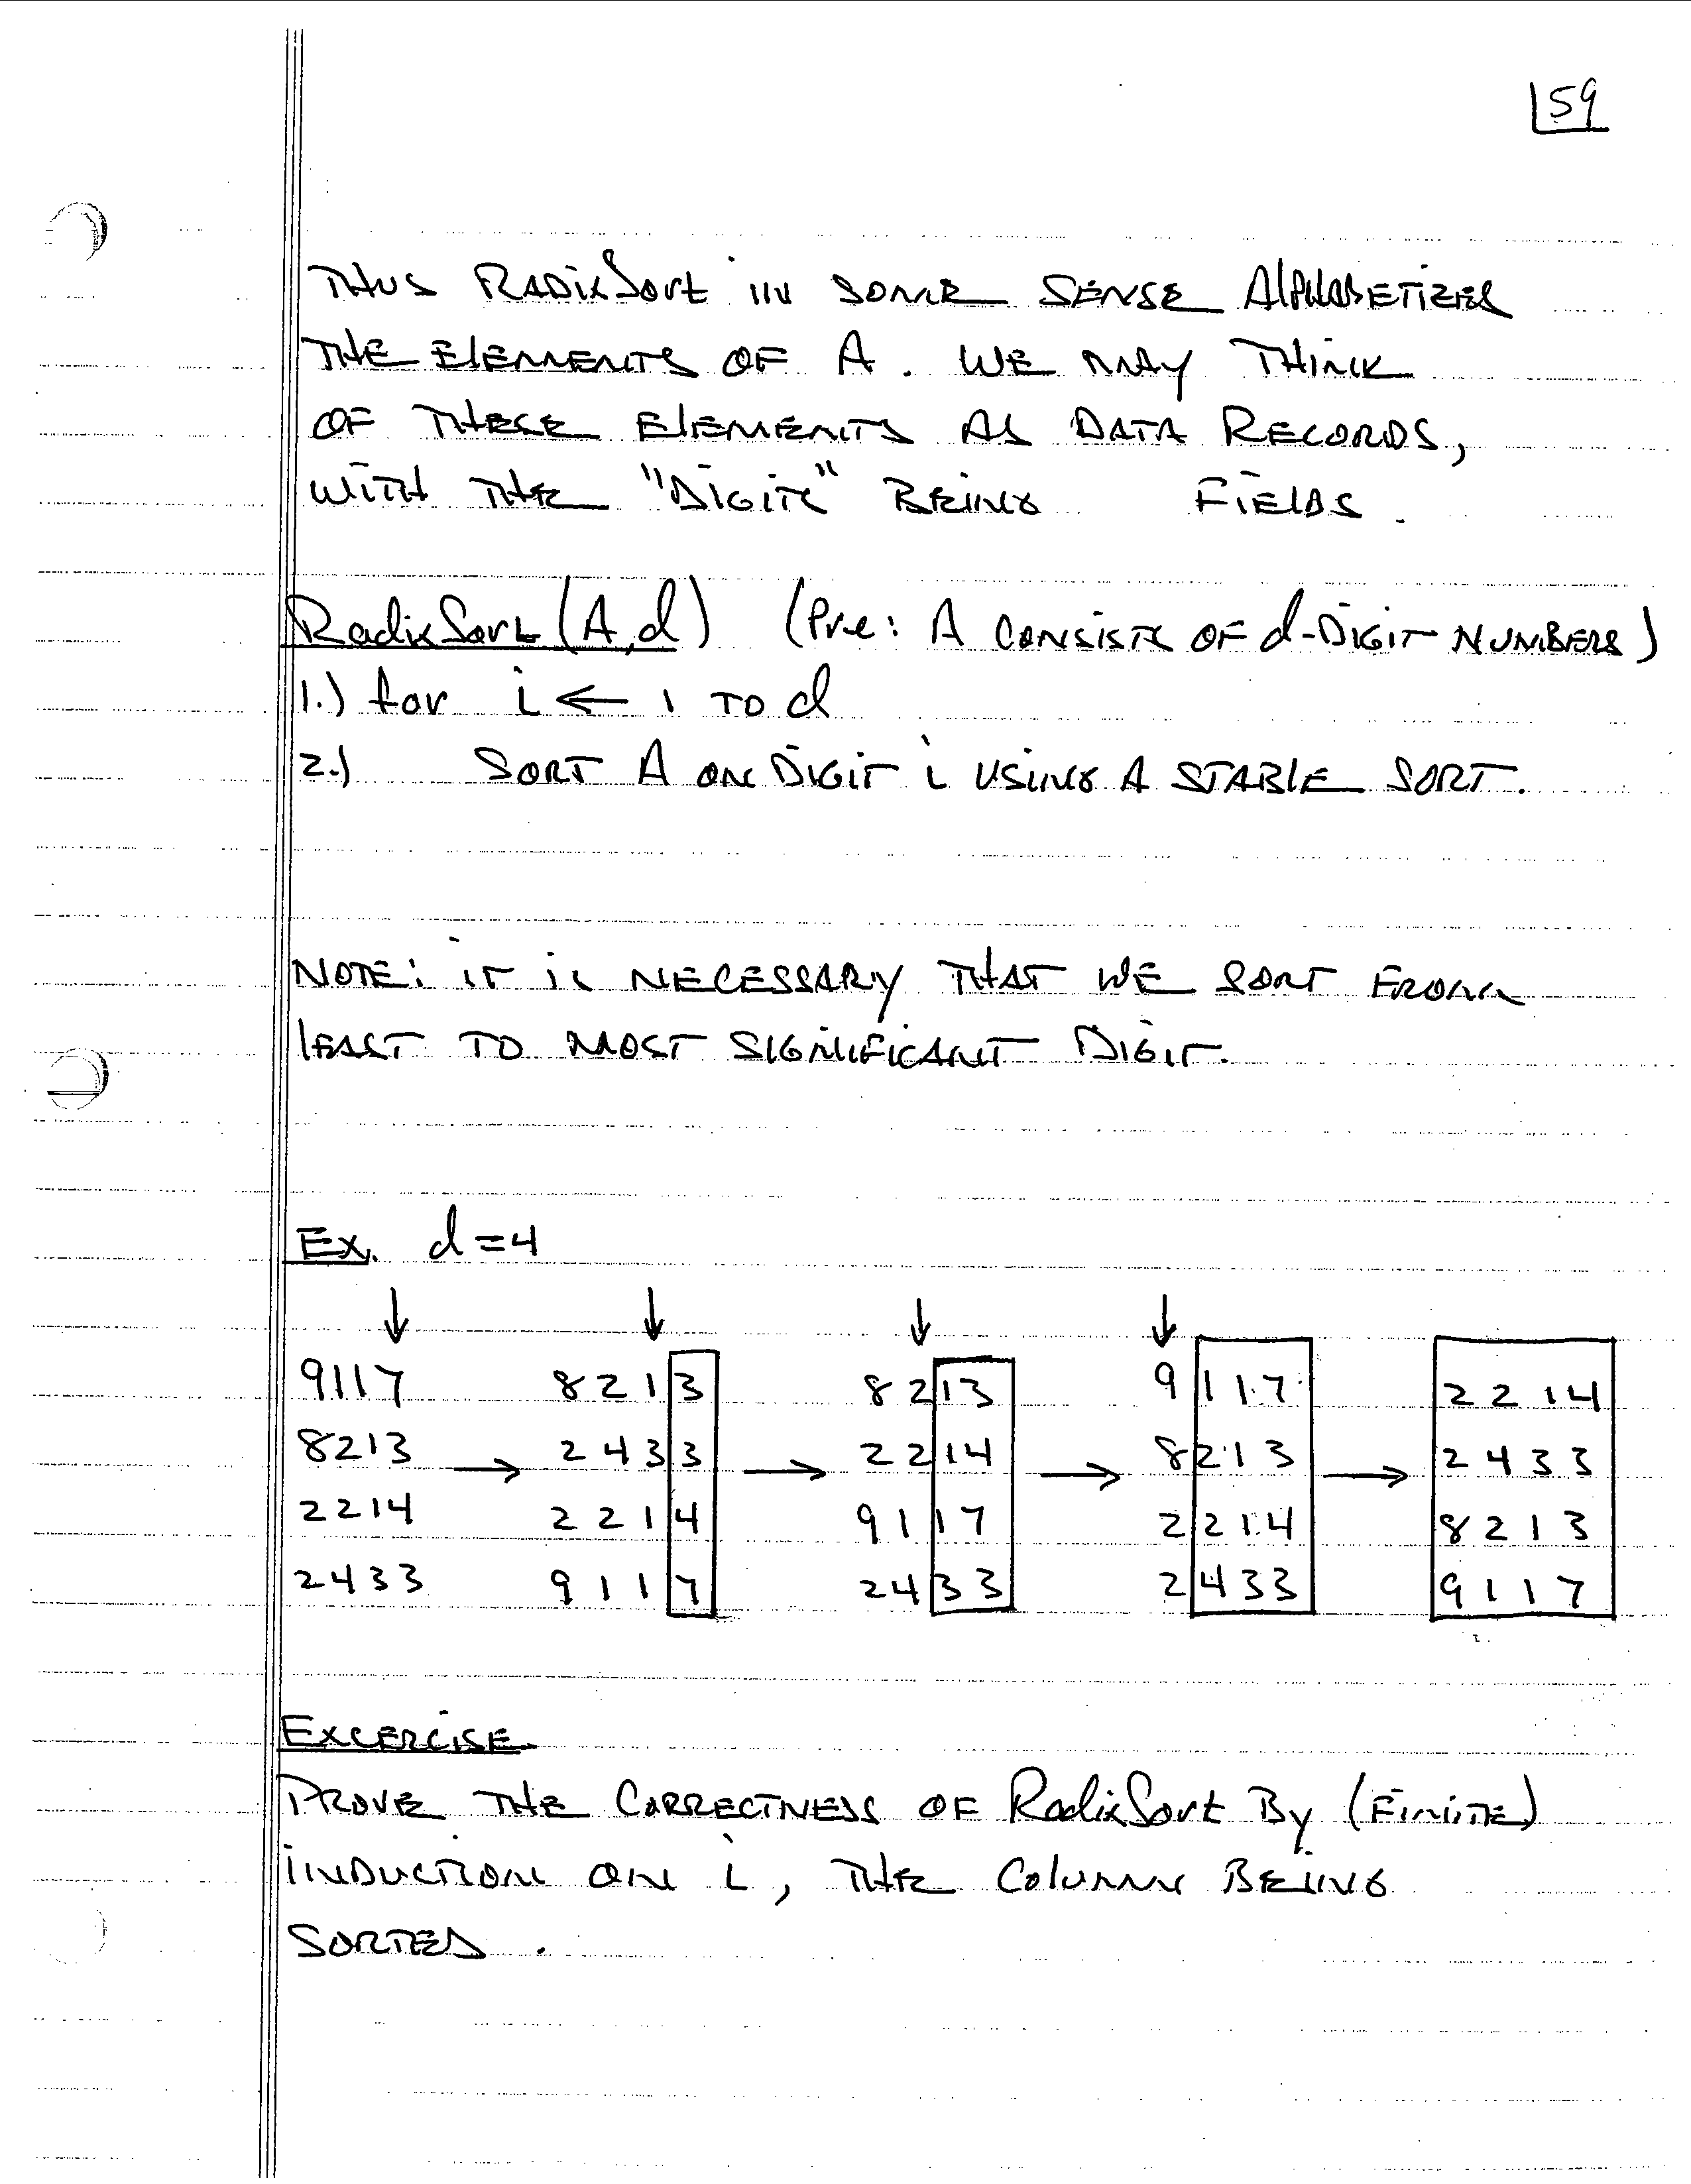 59
Thus RadixSort in some sense alphabetizes
the elements of A. We may think
of these elements as data records,
with the "digits" being fields.
RadixSort(A,d) (Pre: A consists of d-digit numbers)
1.) for i ← 1 to d
2.) Sort A on digit i using a stable sort.
Note: it is necessary that we sort from
least to most significant digit.
Ex. d=4
↓ ↓ ↓ ↓
9117 8213 8213 9117 2214
8213 → 2433 → 2214 → 8213 → 2433
2214 2214 9117 2214 8213
2433 9117 2433 2433 9117
Excercise
Prove the correctness of RadixSort by (finite)
induction on i, the column being
sorted.